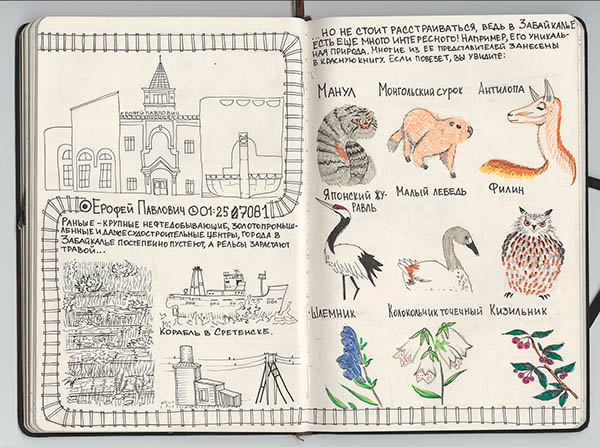 ЕРОФЕЙ ПАВЛОВИЧ
Ерофей Павлович 01:25 7081
Раньше - крупные нефтедобывающие, золотопромыш-
ленные и даже судостроительные центры, города в
Забайкалье постепенно пустеют, а рельсы зарастают
травой...
Корабль в Сретенске.
...Но не стоит расстраиваться, ведь в Забайкалье
есть еще много интересного! Например, его уникаль-
ная природа. Многие из ее представителей занесены
в Красную книгу. Если повезет, вы увидите:
Манул Монгольский сурок Антилопа
Японский жу-
равль Малый лебедь Филин
Шлемник Колокольчик точечный Кизильник